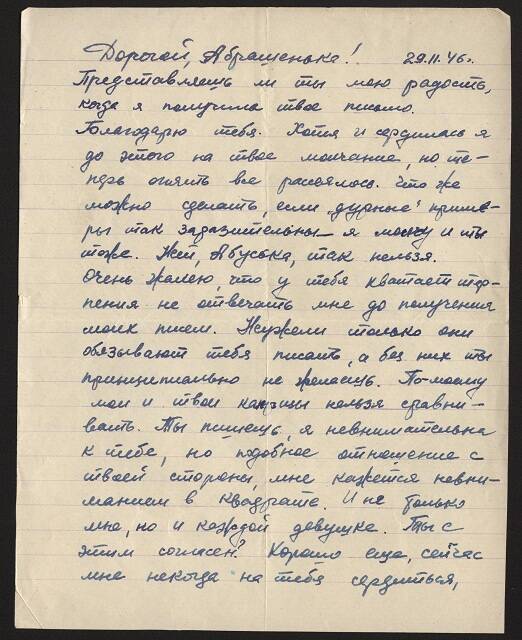 Дорогой, Абрашенька! 29.11.46г.
Представляешь ли ты мою радость,
когда я получила твое письмо.
Благодарю тебя. Хотя и сердилась я
до этого на твое молчание, но те-
перь опять все рассеялось. Что же
можно сделать, если "дурные" приме-
ры так заразительны – я молчу и ты
тоже. Нет, Абуська, так нельзя.
Очень жалею, что у тебя хватает тер-
пения не отвечать мне до получения
моих писем. Неужели только они
обязывают тебя писать, а без них ты
принципиально не желаешь. По-моему
мои и твои капризы нельзя сравни-
вать. Ты пишешь, я невнимательна
к тебе, но подобное отношение с
твоей стороны, мне кажется невни-
манием в квадрате. И не только
мне, но и каждой девушке. Ты с
этим согласен? Хорошо еще, сейчас
мне некогда на тебя сердиться,